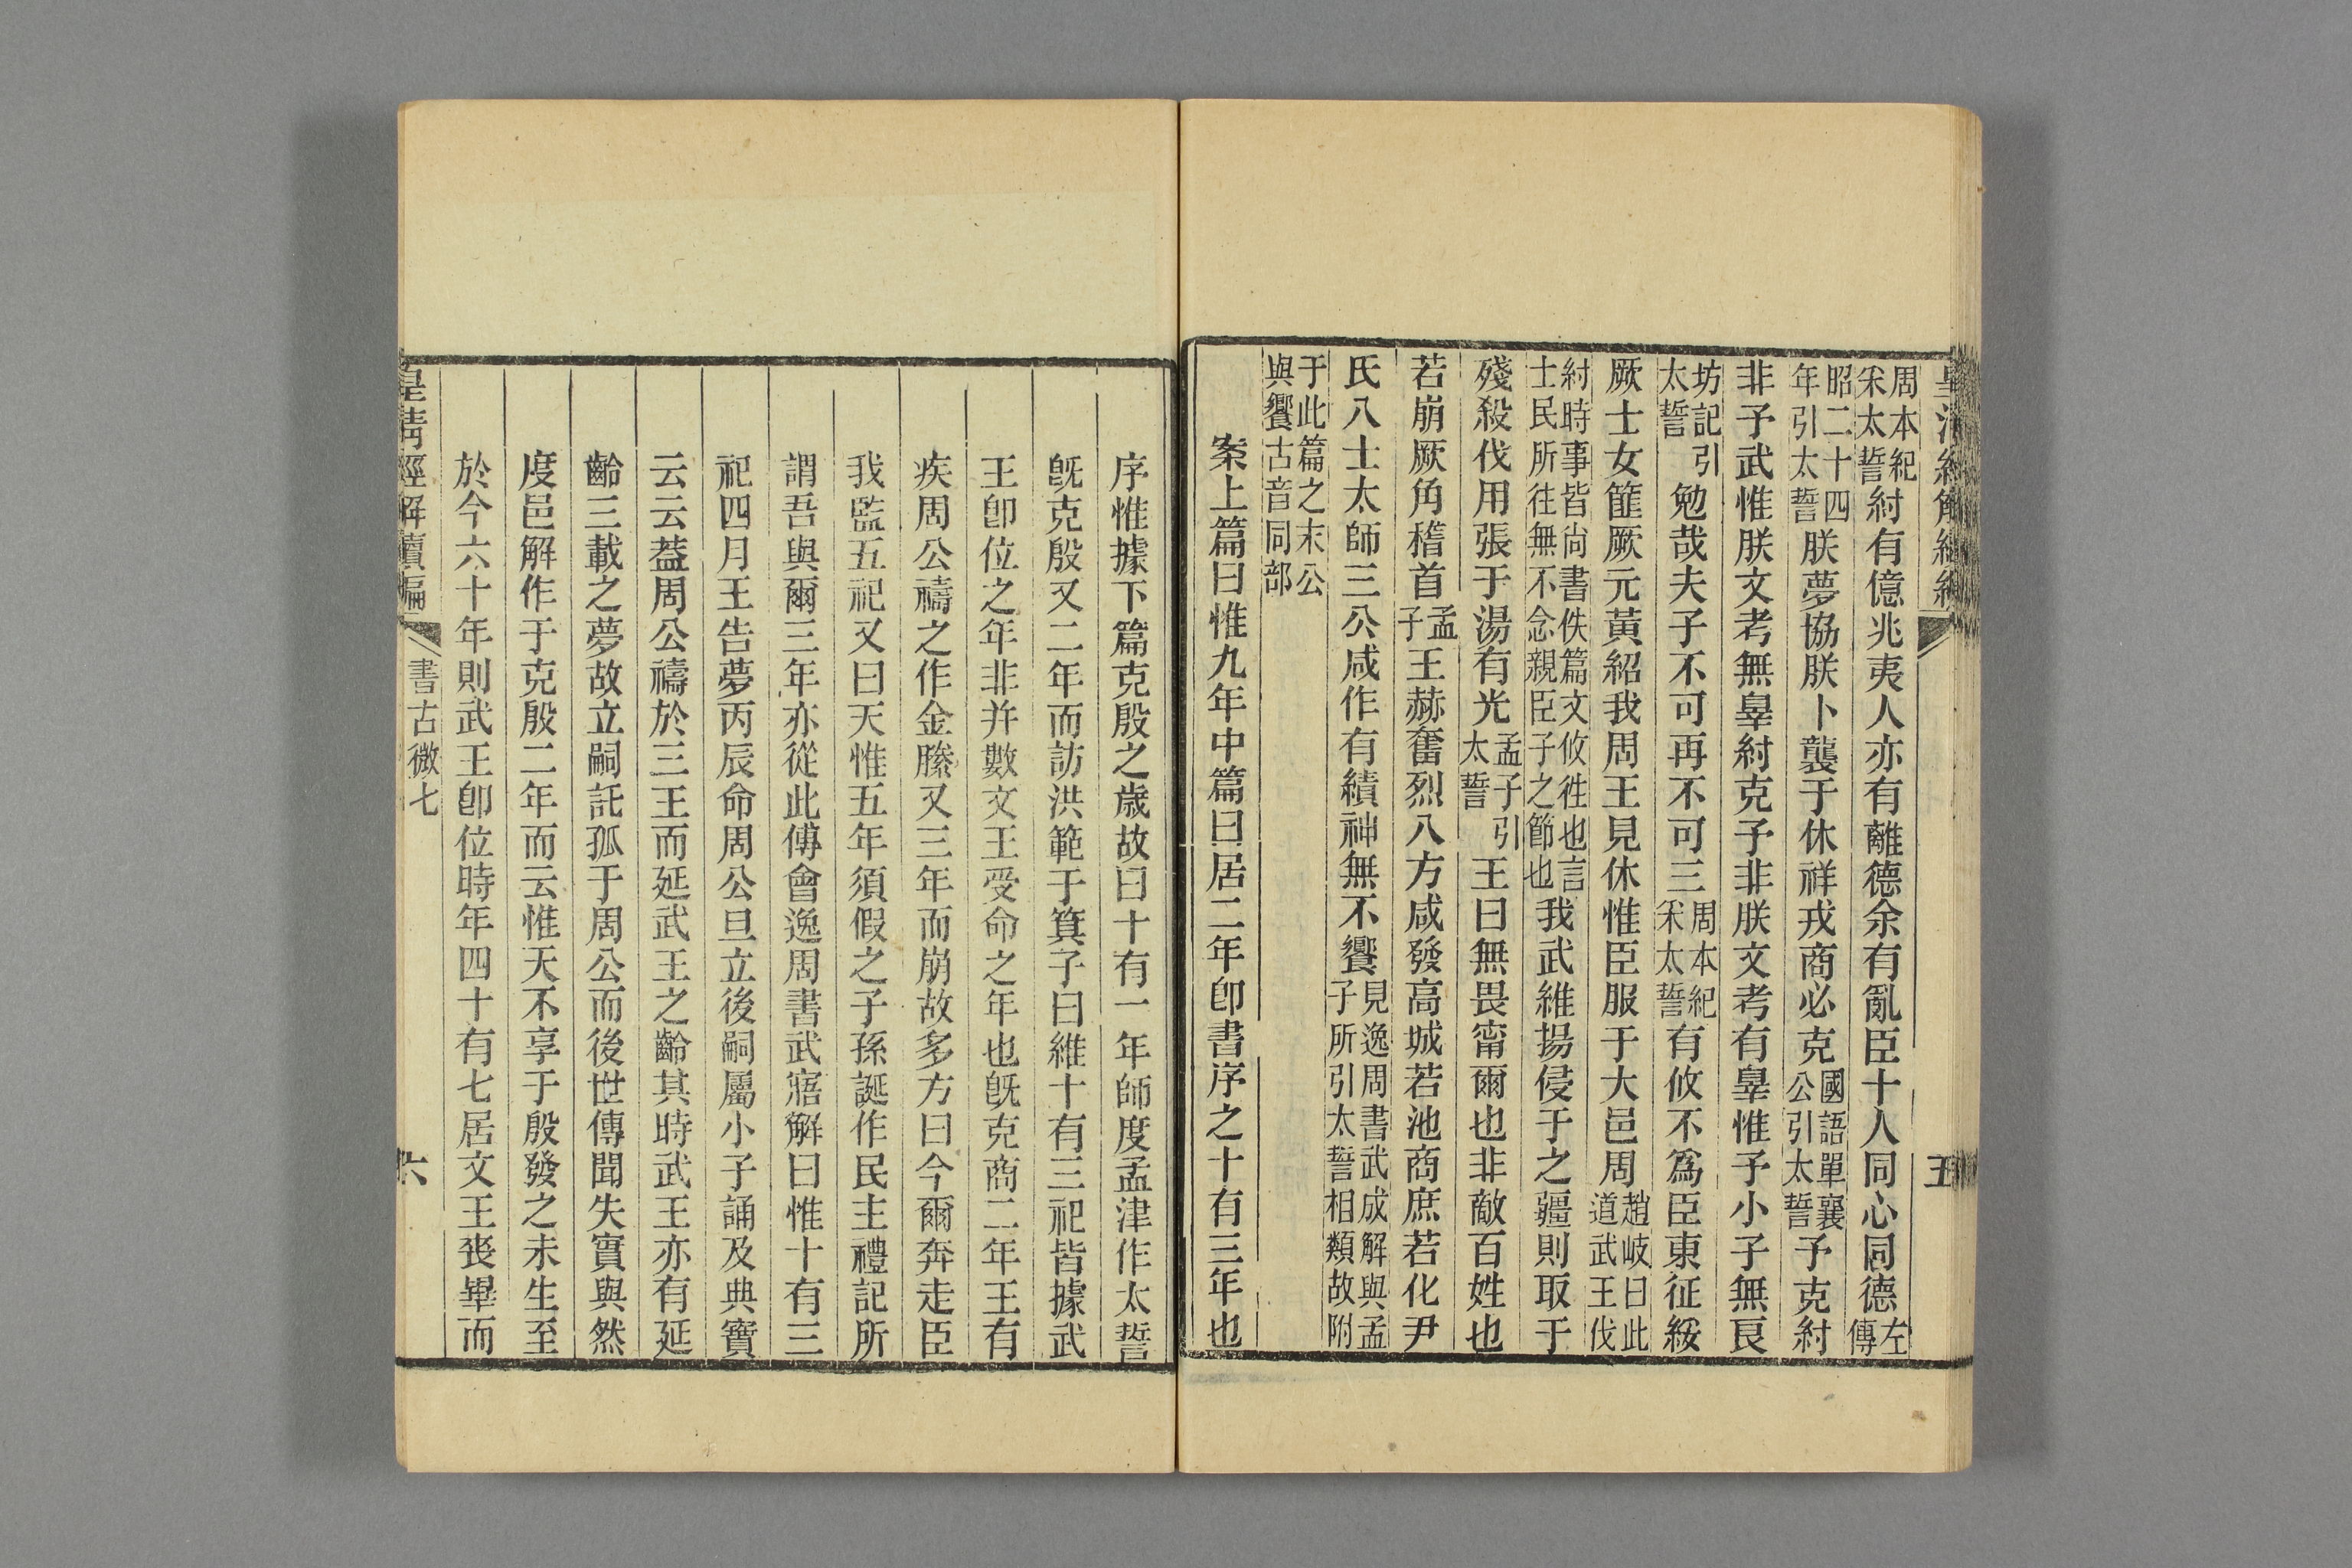 皇清經解續編 五
周本紀采太誓紂有億兆夷人亦有離德余有亂臣十人同心同德左傳
昭二十四年引太誓朕夢協朕卜襲于休祥戎商必克國語單襄公引太誓予克紂
非予武惟朕文考無辠紂克予非朕文考有辠惟予小子無良
坊記引太誓勉哉夫子不可再不可三周本紀采太誓有攸不爲臣東征綏
厥士女篚厥元黃紹我周王見休惟臣服于大邑周趙岐曰此道武王伐
紂時事皆尚書佚篇文攸徃也言士民所往無不念親臣子之節也我武維揚侵于之疆則取于
殘殺伐用張于湯有光孟子引太誓王曰無畏甯爾也非敵百姓也
若崩厥角稽首孟子王赫奮烈八方咸發高城若池商庶若化尹
氏八士太師三公咸作有績神無不饗見逸周書武成解與孟子所引太誓相類故附
于此篇之末公與饗古音同部
案上篇曰惟九年中篇曰居二年卽書序之十有三年也
序惟據下篇克殷之歲故曰十有一年師度孟津作太誓
旣克殷又二年而訪洪範于箕子曰維十有三祀皆據武
王卽位之年非并數文王受命之年也旣克商二年王有
疾周公禱之作金縢又三年而崩故多方曰今爾奔走臣
我監五祀又曰天惟五年須假之子孫誕作民主禮記所
謂吾與爾三年亦從此傅會逸周書武寤解曰惟十有三
祀四月王告夢丙辰命周公旦立後嗣屬小子誦及典寶
云云葢周公禱於三王而延武王之齡其時武王亦有延
齡三載之夢故立嗣託孤于周公而後世傳聞失實與然
度邑解作于克殷二年而云惟天不享于殷發之未生至
於今六十年則武王卽位時年四十有七居文王喪畢而
皇清經解續編 書古微七 六